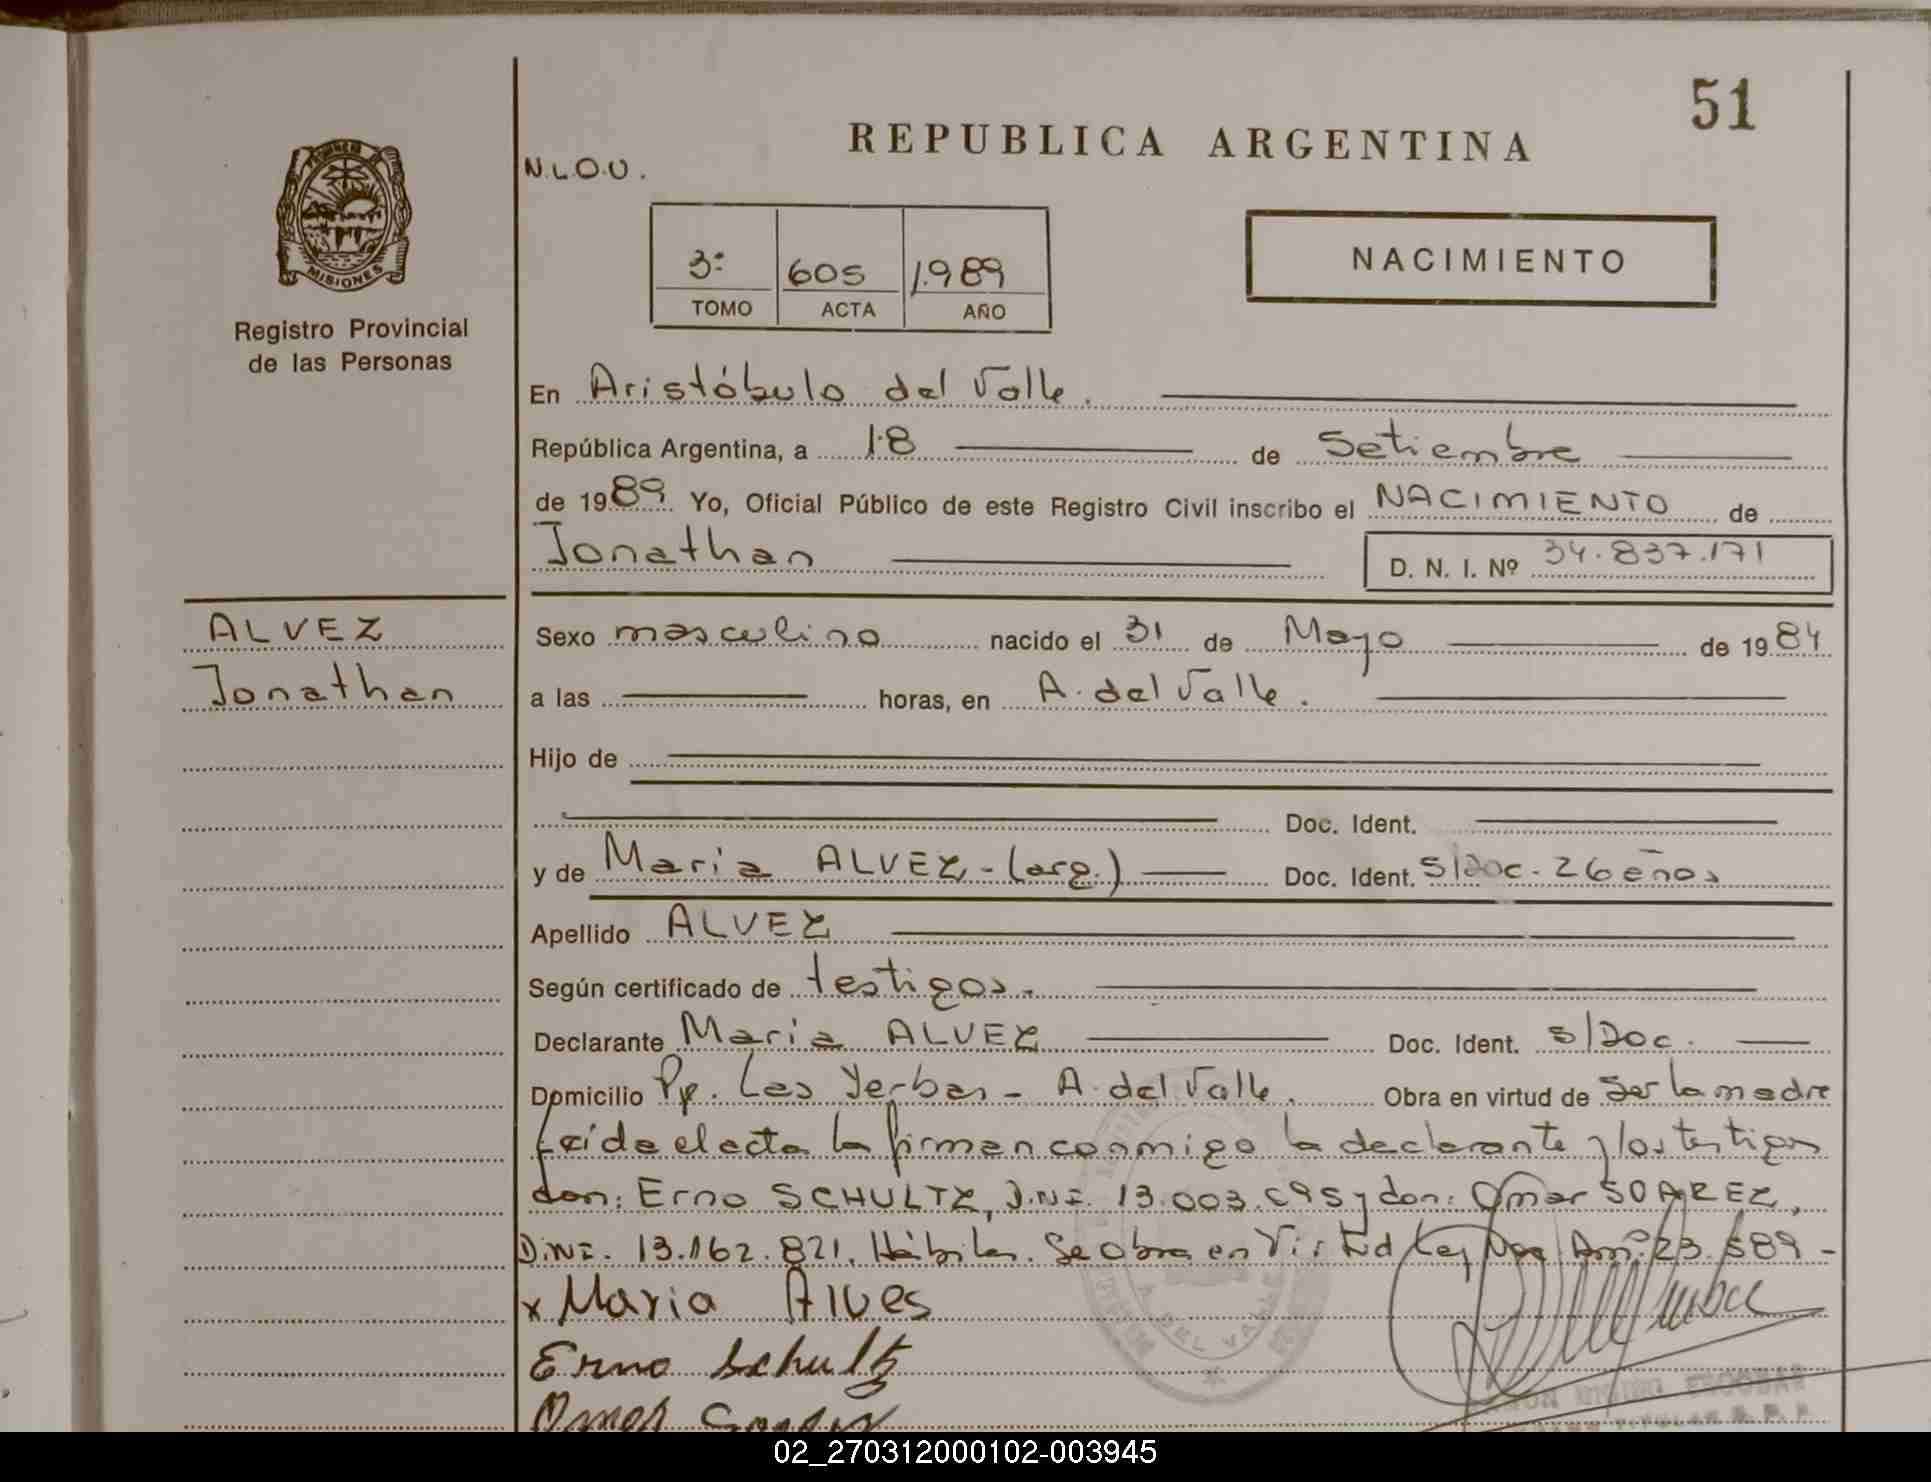 51
REPUBLICA ARGENTINA
N.L.O.U.
PROVINCIA DE
MISIONES
Registro Provincial
de las Personas
3º 605 1.989
TOMO ACTA AÑO
NACIMIENTO
En Aristóbulo del Valle.
República Argentina, a 18 de Setiembre
de 1989. Yo, Oficial Público de este Registro Civil inscribo el NACIMIENTO de
Jonathan
D. N. I. Nº 34.837.171
ALVEZ
Jonathan
Sexo masculino nacido el 31 de Mayo de 1984
a las horas, en A. del Valle.
Hijo de
Doc. Ident.
y de Maria ALVEZ - (arg.) Doc. Ident. S/Doc. 26 años
Apellido ALVEZ
Según certificado de testigos.
Declarante Maria ALVEZ Doc. Ident. S/Doc.
Domicilio Pje. Las Yerbas - A. del Valle. Obra en virtud de ser la madre
Leida el acta la firman conmigo la declarante y los testigos
don: Erno SCHULTZ, D.N.I. 13.003.695 y don: Omar SOAREZ,
D.N.I. 13.162.821. Hábiles. Se obra en Virtud Ley 23.589 -
x Maria Alves
Erno Schultz
Omar
A. DEL VALLE
ESCOBAR
02_270312000102-003945